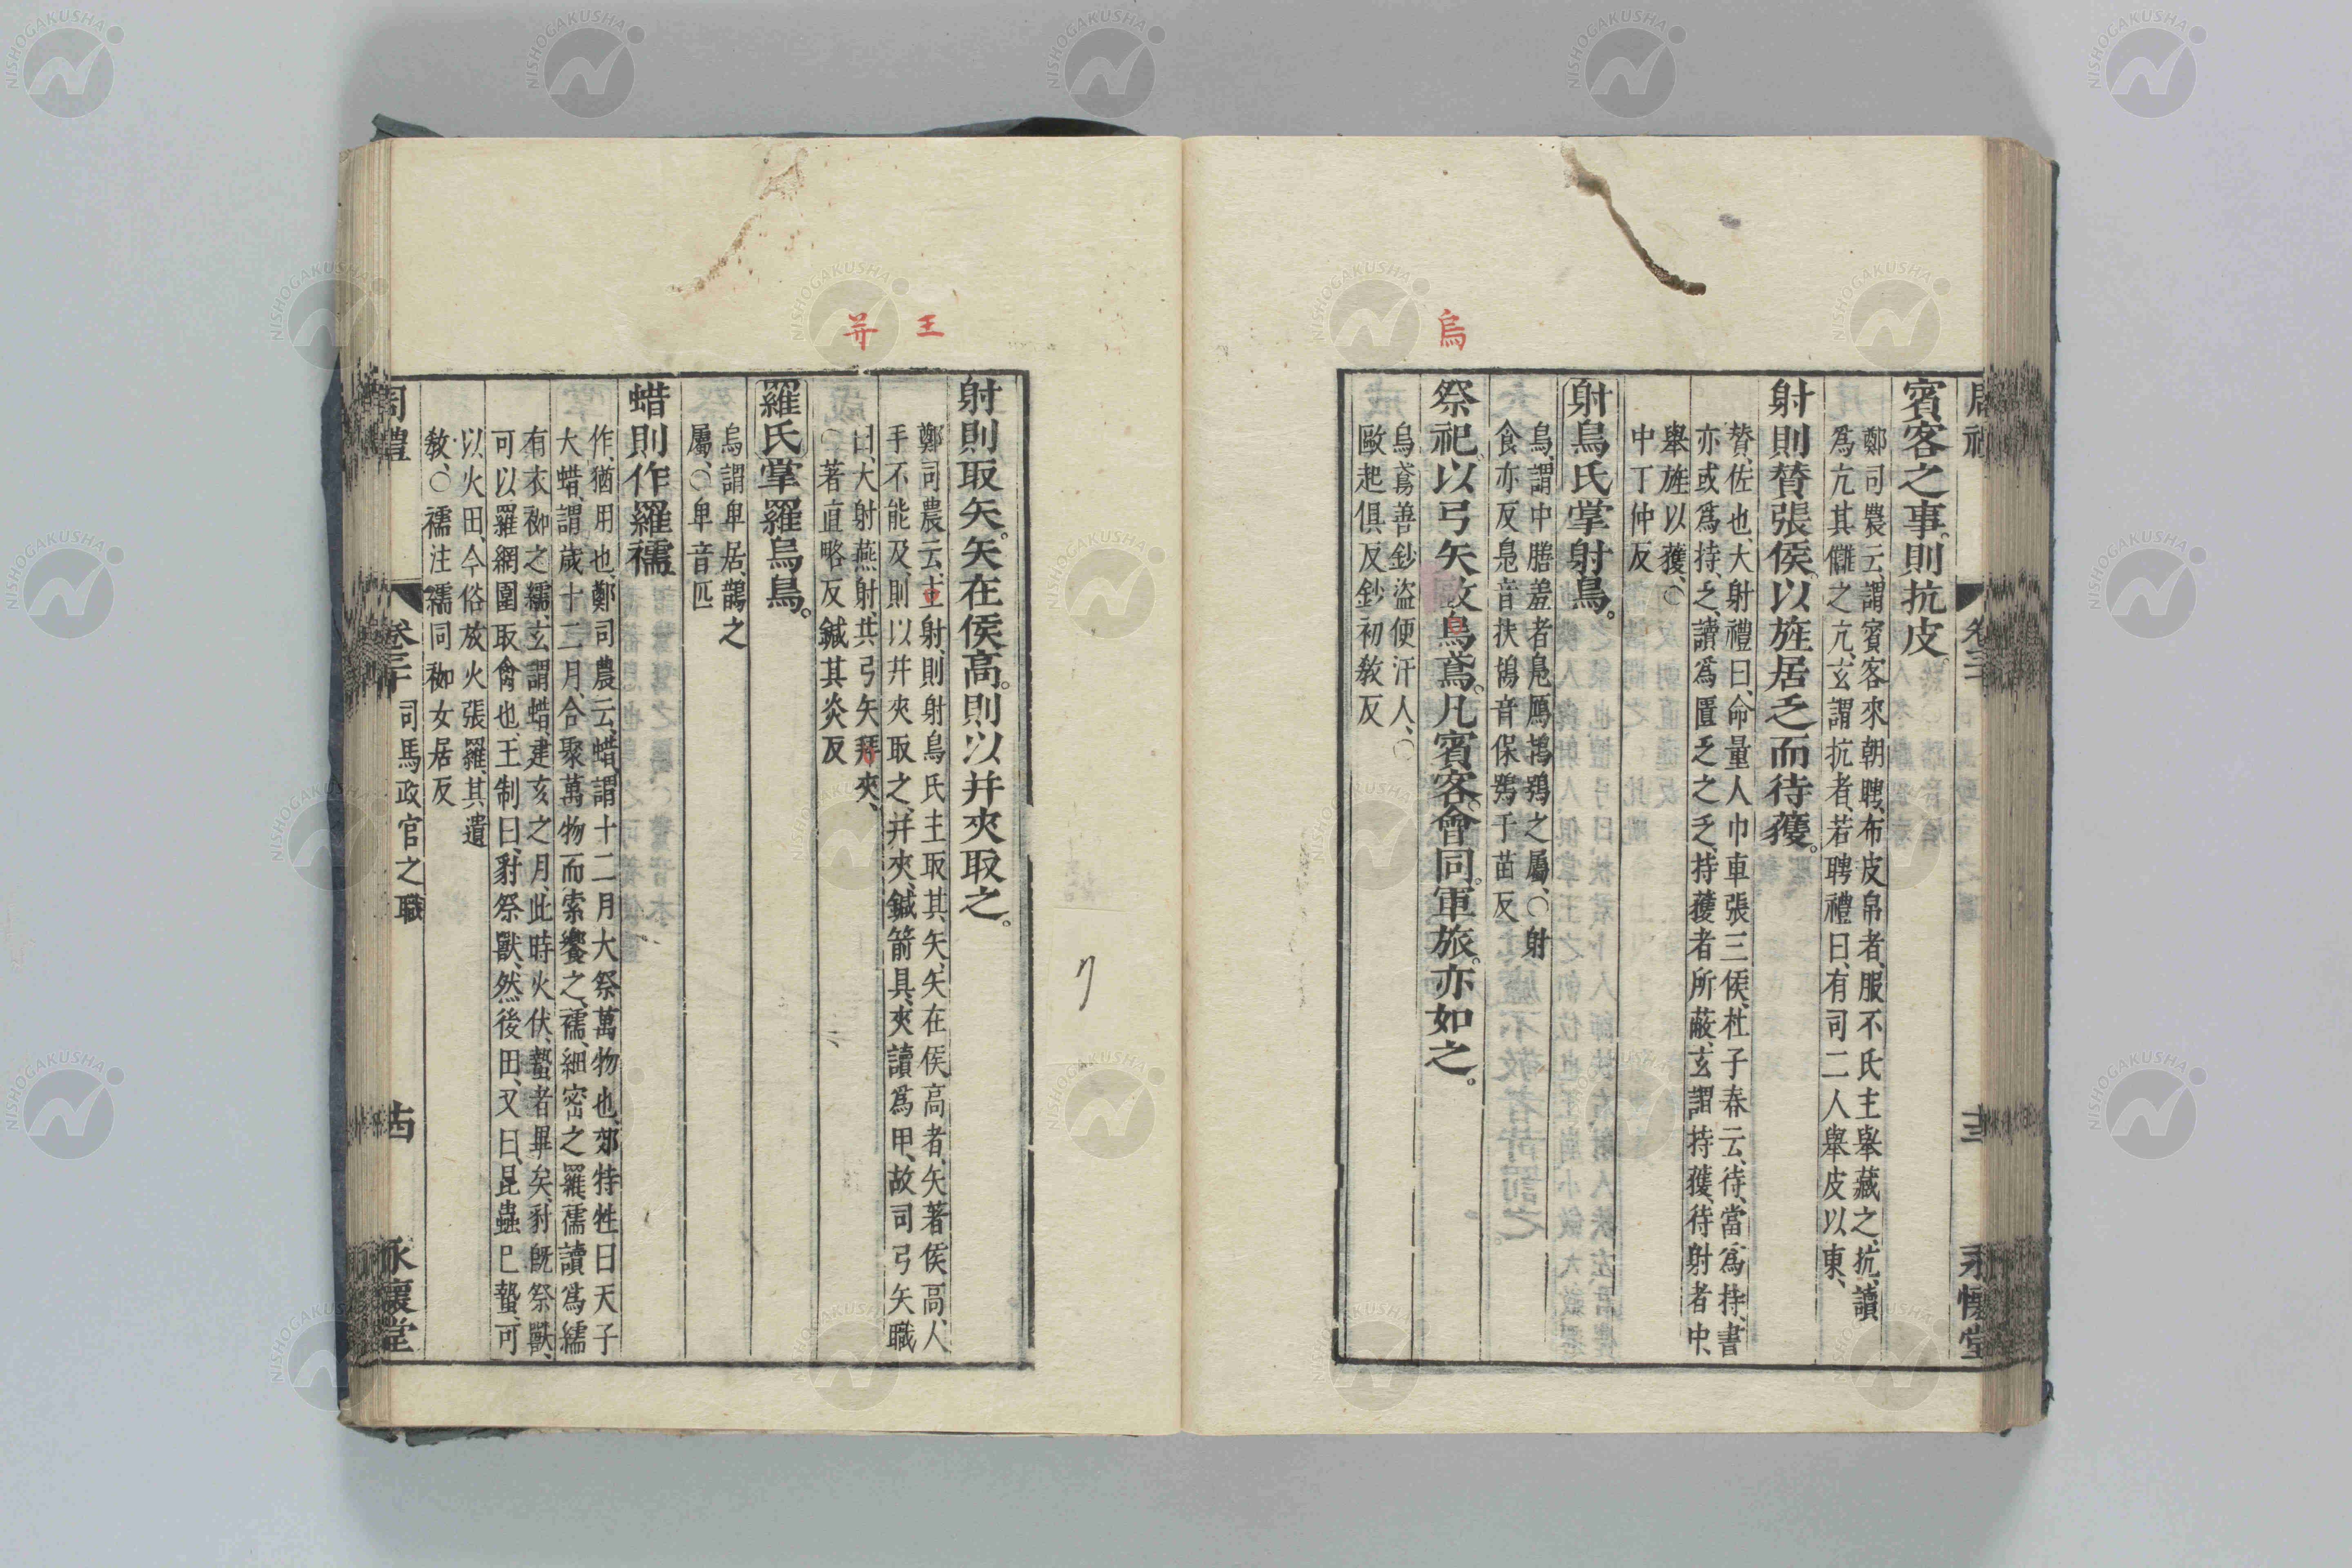 烏
周禮 卷三十 十三 永懷堂
賓客之事。則抗皮。
鄭司農云、謂賓客來朝聘、布皮帛者、服不氏主舉藏之、抗、讀
爲亢其讎之亢、玄謂抗者、若聘禮曰、有司二人舉皮以東、
射則贊張侯。以旌居乏而待獲。
贊、佐也、大射禮曰、命量人巾車張三侯、杜子春云、待、當爲持、書
亦或爲持、乏、讀爲匱乏之乏、持獲者所蔽、玄謂持獲、待射者中、
舉旌以獲、○
中丁仲反
射鳥氏掌射鳥。
鳥、謂中膳羞者、鳧鴈鴇鴞之屬、○射
食亦反鳧音扶鴇音保鴞于苗反
祭祀。以弓矢敺鳥鳶。凡賓客。會同。軍旅。亦如之。
烏鳶善鈔盜便汙人、○
敺起俱反鈔初敎反
王
并
射則取矢。矢在侯高。則以并夾取之。
鄭司農云、主射、則射鳥氏主取其矢、矢在侯高者、矢著侯高、人
手不能及、則以并夾取之、并夾、鍼箭具、夾讀爲甲、故司弓矢職
曰、大射燕射、共弓矢拜夾、
○著直略反鍼其炎反
羅氏掌羅烏鳥。
烏謂卑居、鵲之
屬、○卑音匹
蜡則作羅襦
作、猶用也、鄭司農云、蜡、謂十二月大祭萬物也、郊特牲曰天子
大蜡、謂歲十二月、合聚萬物而索饗之、襦、細密之羅、襦讀爲繻
有衣袽之繻、玄謂蜡、建亥之月、此時火伏、蟄者畢矣、豺旣祭獸、
可以羅網圍取禽也、王制曰、豺祭獸、然後田、又曰、昆蟲已蟄、可
以火田、今俗放火張羅、其遺
敎、○襦注繻同袽女居反
周禮 卷三十 司馬政官之職 十四 永懷堂